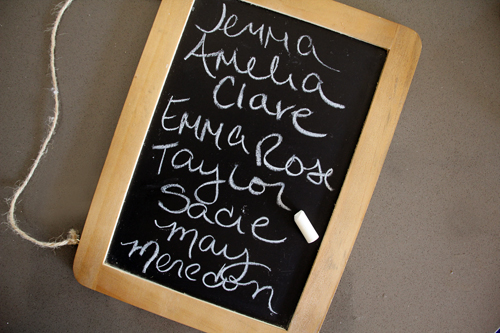 Jemma
Amelia
Clare
Emma Rose
Taylor
Sadie
may
meredon